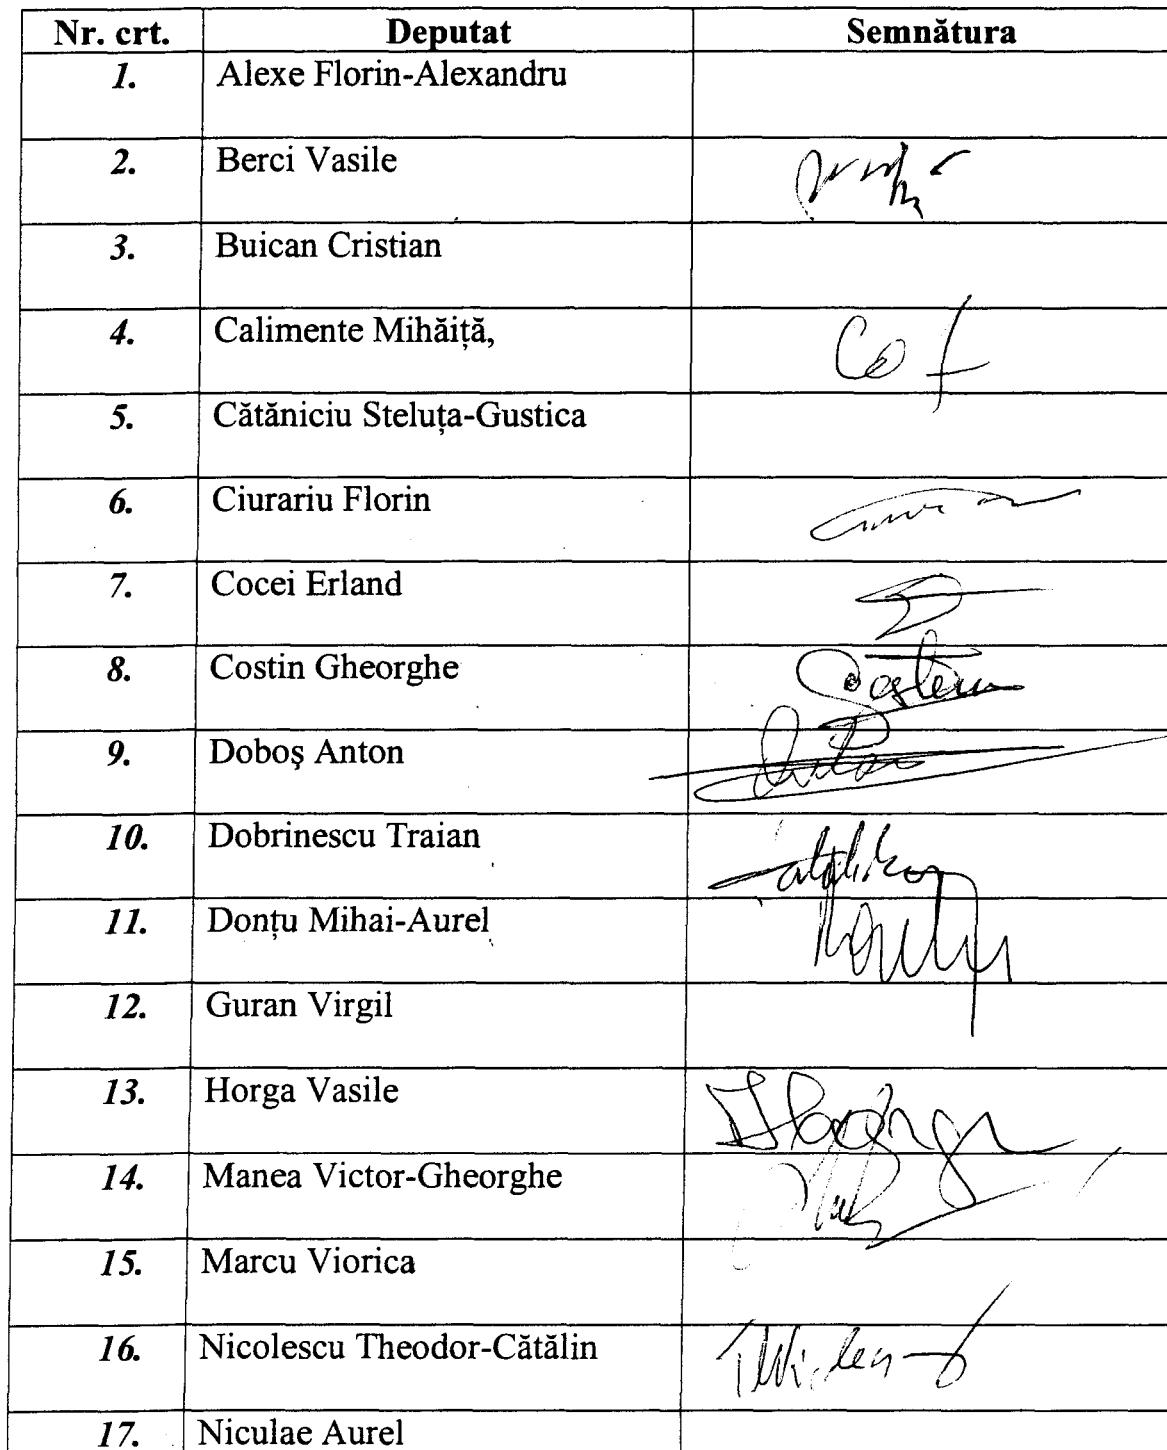 Nr. crt. Deputat Semnătura
1. Alexe Florin-Alexandru
2. Berci Vasile
3. Buican Cristian
4. Calimente Mihăiță,
5. Cătăniciu Steluța-Gustica
6. Ciurariu Florin
7. Cocei Erland
8. Costin Gheorghe
9. Doboş Anton
10. Dobrinescu Traian
11. Donțu Mihai-Aurel
12. Guran Virgil
13. Horga Vasile
14. Manea Victor-Gheorghe
15. Marcu Viorica
16. Nicolescu Theodor-Cătălin
17. Niculae Aurel